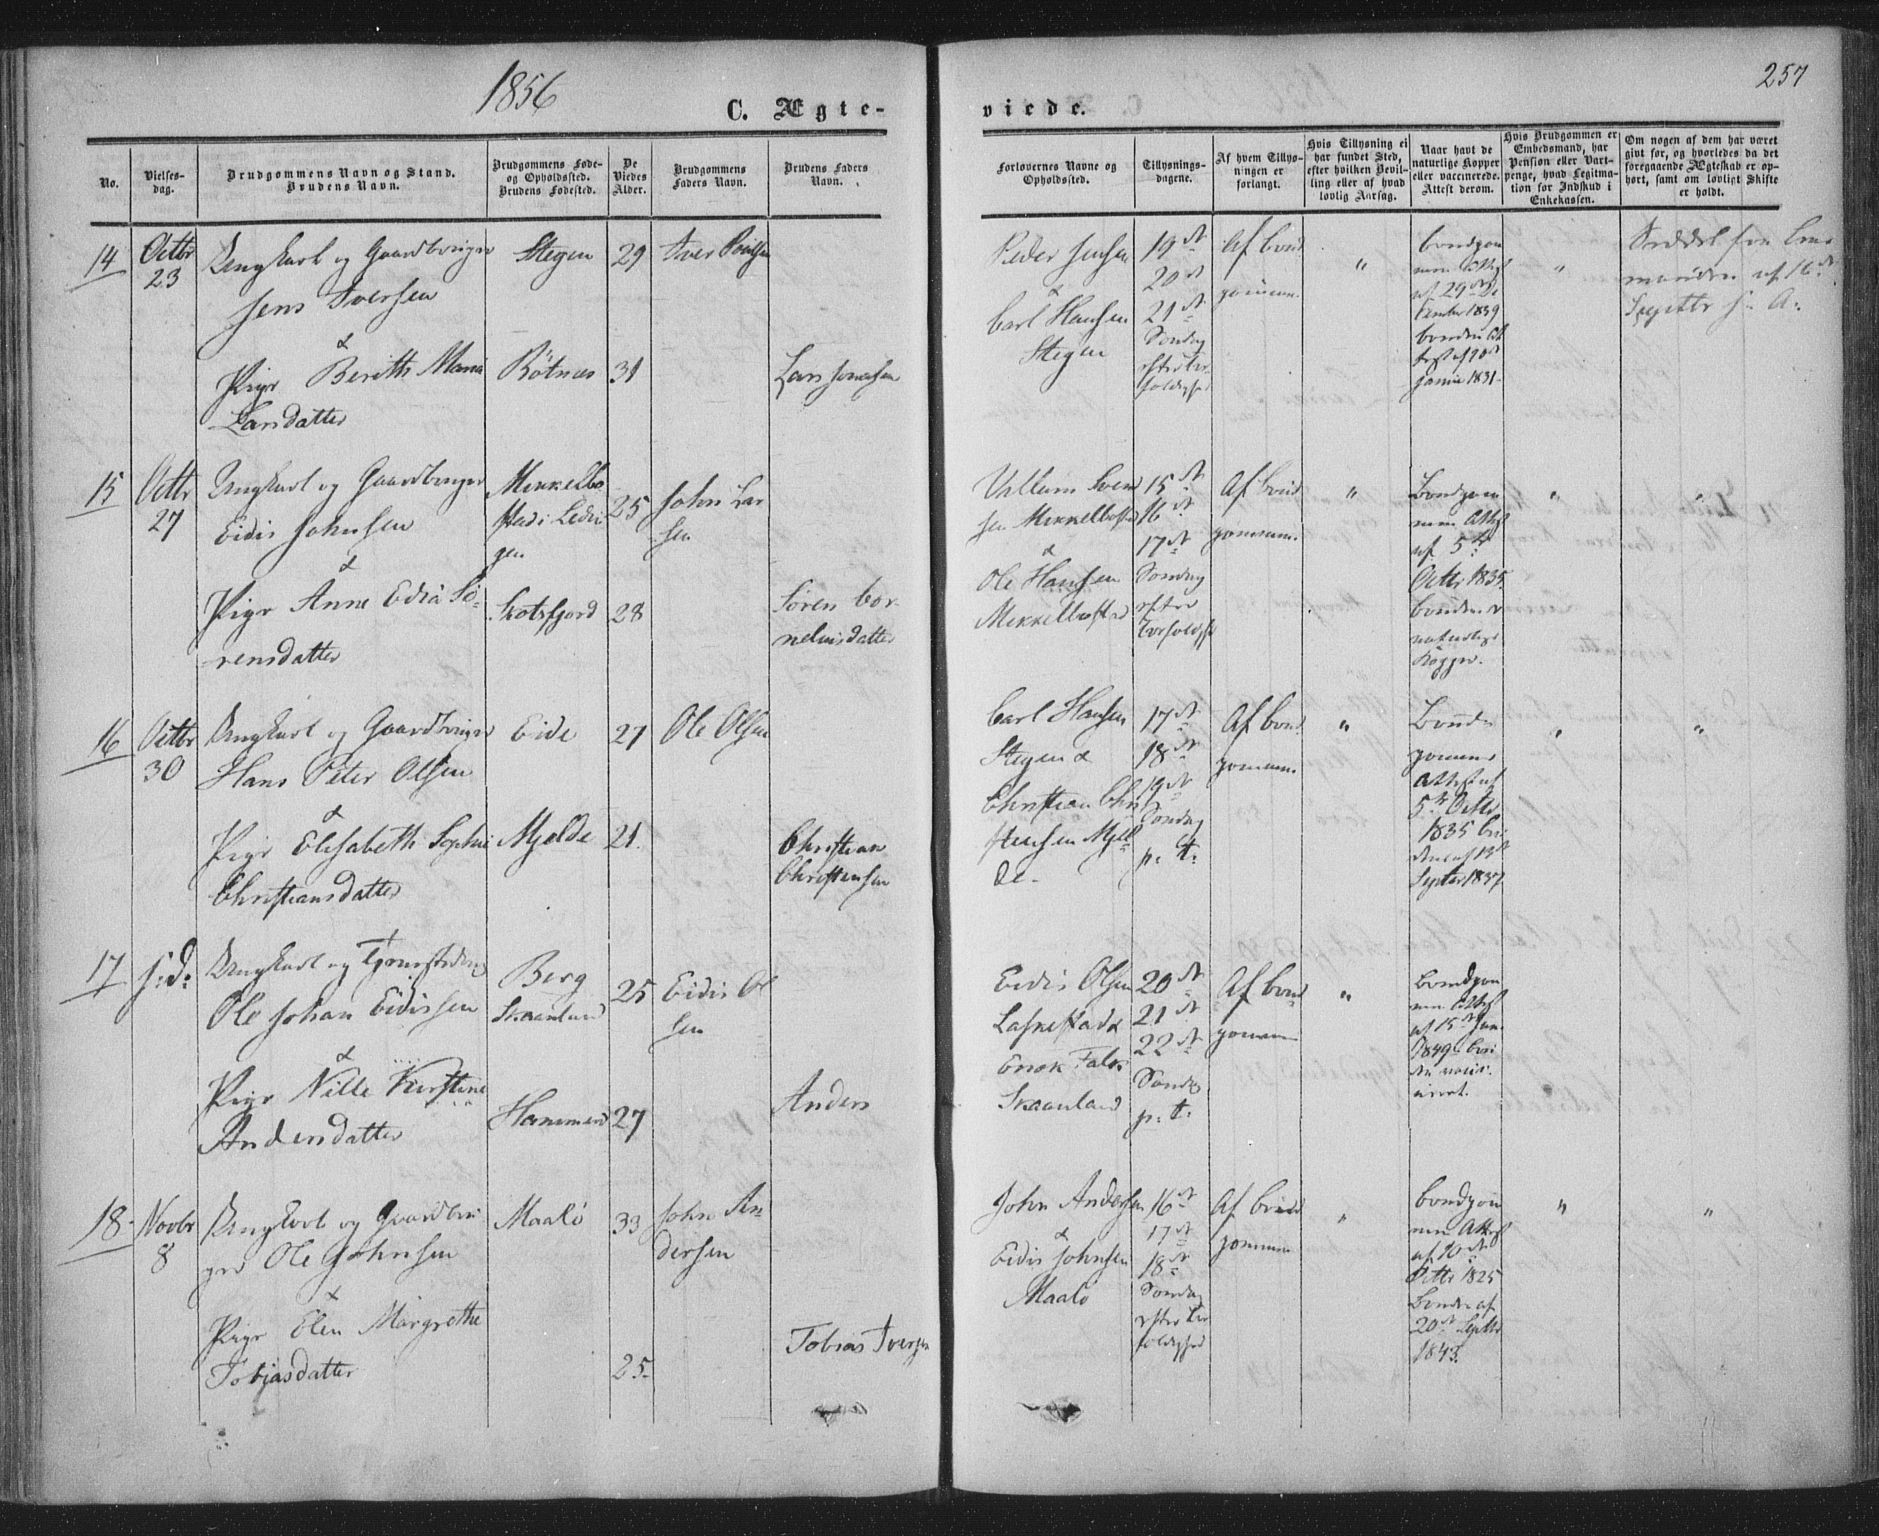 1856
257
C. Ægte-
viede.
No.
Vielses-
dag.
Brudgommens Navn og Stand.
Brudens Navn.
Brudgommens Føde-
og Opholdssted.
Brudens Fødested.
De
Viedes
Alder.
Brudgommens
Faders Navn.
Brudens Faders
Navn.
Forlovernes Navne og
Opholdssted.
Tillysnings-
dagene.
Af hvem Tillys-
ningen er
forlangt.
Hvis Tillysning ei
har fundet Sted,
efter hvilken Bevil-
ling eller af hvad
lovlig Aarsag.
Naar havt de
naturlige Kopper
eller vaccinerede.
Attest derom.
Hvis Brudgommen er
Embedsmand, har
Pension eller Vart-
penge, hvad Legitma-
tion for Indskud i
Enkekassen.
Om nogen af dem har været
gift før, og hvorledes da det
foregaaende Ægteskab er op-
hørt, samt om lovligt Skifte
er holdt.
14
Octbr
23
Ungkarl og Gaardbruger
Jens Iversen
&
Pige Berith Maria
Larsdatter
Stegen
Bötnæs
29
31
Iver Poulsen
Lars Jonassen
Peder Jensen
&
Carl Hansen
Stegen
19de
20de
21de
Søndag
efter Tre
foldighed
Af brud
gommen.
"
brudgom
men Attest
af 29de De
cember 1839
bruden At
test af 20de
Janua 1831
"
af 16de
Septbr
15
Octbr
27
Ungkarl og Gaardbruger
Eidis Johnsen
&
Pige Anne Edia Sö-
rensdatter
Mikkelbo
stad i Ledin
gen
Skotsfjord
25
28
John Lar
sen
Sören Cor-
neliusdatter
Villum Svend
sen Mikkelbostad
&
Ole Hansen
Mikkelbostad
15de
16de
17de
Søndag
efter
Trefoldighed
Af brud
gommen.
"
Brudgom
men Attest
af 5te
Octbr 1835.
bruden
naturlige
Kopper.
"
16
Octbr
30
Ungkarl og Gaardbruger
Hans Peter Olsen
&
Pige Elisabeth Sophie
Christiansdatter
Eide
Mjelde
27
21.
Ole Olsen
Christian
Christensen
Carl Hansen
Stegen &
Christian Chri
stensen Mjel-
de-
17de
18de
19de
Søndag
p. t.
Af brud
gommen.
"
Brud
gommens
Attest af
5te Octbr
1835 bru
den af 13de
Septbr 1837
"
"
17
s. d.
Ungkarl og Tjenestedreng
Ole Johan Eidissen
&
Pige Nille Kirstine
Andersdatter
Berg
Skaanland
Hammer
25
27
Eidis Ol
sen
Anders
Eidis Olsen
Laskestad &
Enok Falk
Skaanland
20de
21de
22de
Søndag
p. t.
Af brud
gommen
"
brudgom
men Attest
af 15de Jan.
1849. bru
den vacci-
neret.
18
Novbr
8
Ungkarl og Gaardbru
ger Ole Johnsen
&
Pige Elen Margrethe
Tobiasdatter
Maalö
33
25
John An
dersen
Tobias Iversen
John Andersen
&
Eidis Johnsen
Maalö
16de
17de
18de
Søndag
efter Tre
foldighed
Af brud
gommen
"
brudgom
men Attest
af 10de
Octbr 1825
Bruden af
20de Septbr
1843.
"
"